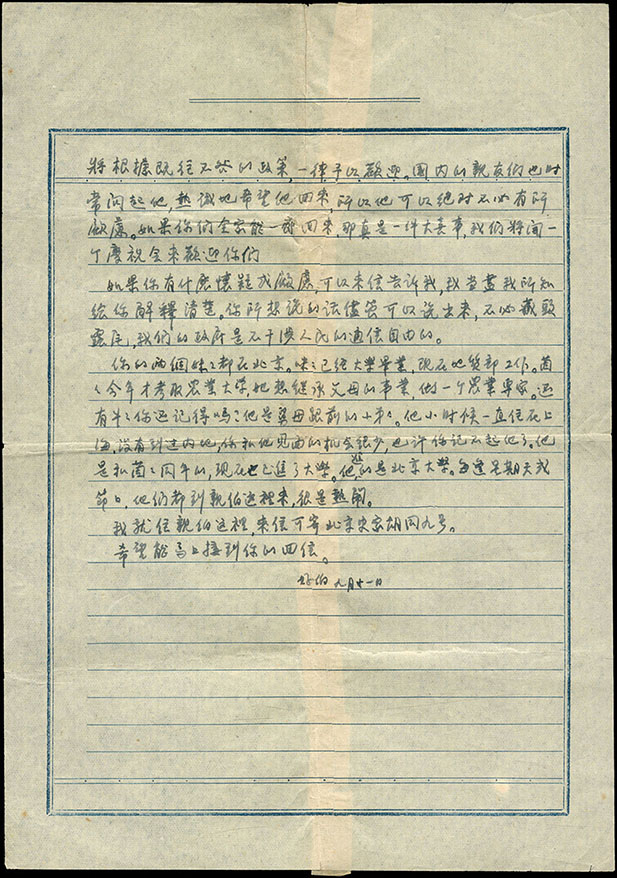 将根據既往不咎的政策,一律予以歡迎。國内的親友們也时
常问起他,热誠地希望他回来,所以他可以绝对不必有所
顾慮。如果你们全家能一齐回来,那真是一件大喜事,我们将闹一
个慶祝会来歡迎你们
如果你有什麽懷疑或顾慮,可以来信告訴我,我当盡我所知
给你解釋清楚。你所想说的话儘管可以说出来,不必藏頭
露尾,我们的政府是不干涉人民的通信自由的。
你的两個妹〻都在北京。咪〻已经大學畢業,现在地質部工作。茵
〻今年才考取农業大学,她想継承父母的事業,做一个農業專家。还
有牛〻你还记得吗?他是舅母跟前的小弟〻。他小时候一直住在上
海,没有到过内地,你和他見面的机会很少,也许你记不起他了。他
是和茵〻同年的,现在也已進了大學。他进的是北京大學。每逢星期天或
節日,他们都到親伯这裡来,很是热闹。
我就住親伯这裡,来信可寄北京宋家胡同九号。
希望能馬上接到你的回信。
好伯 九月十一日